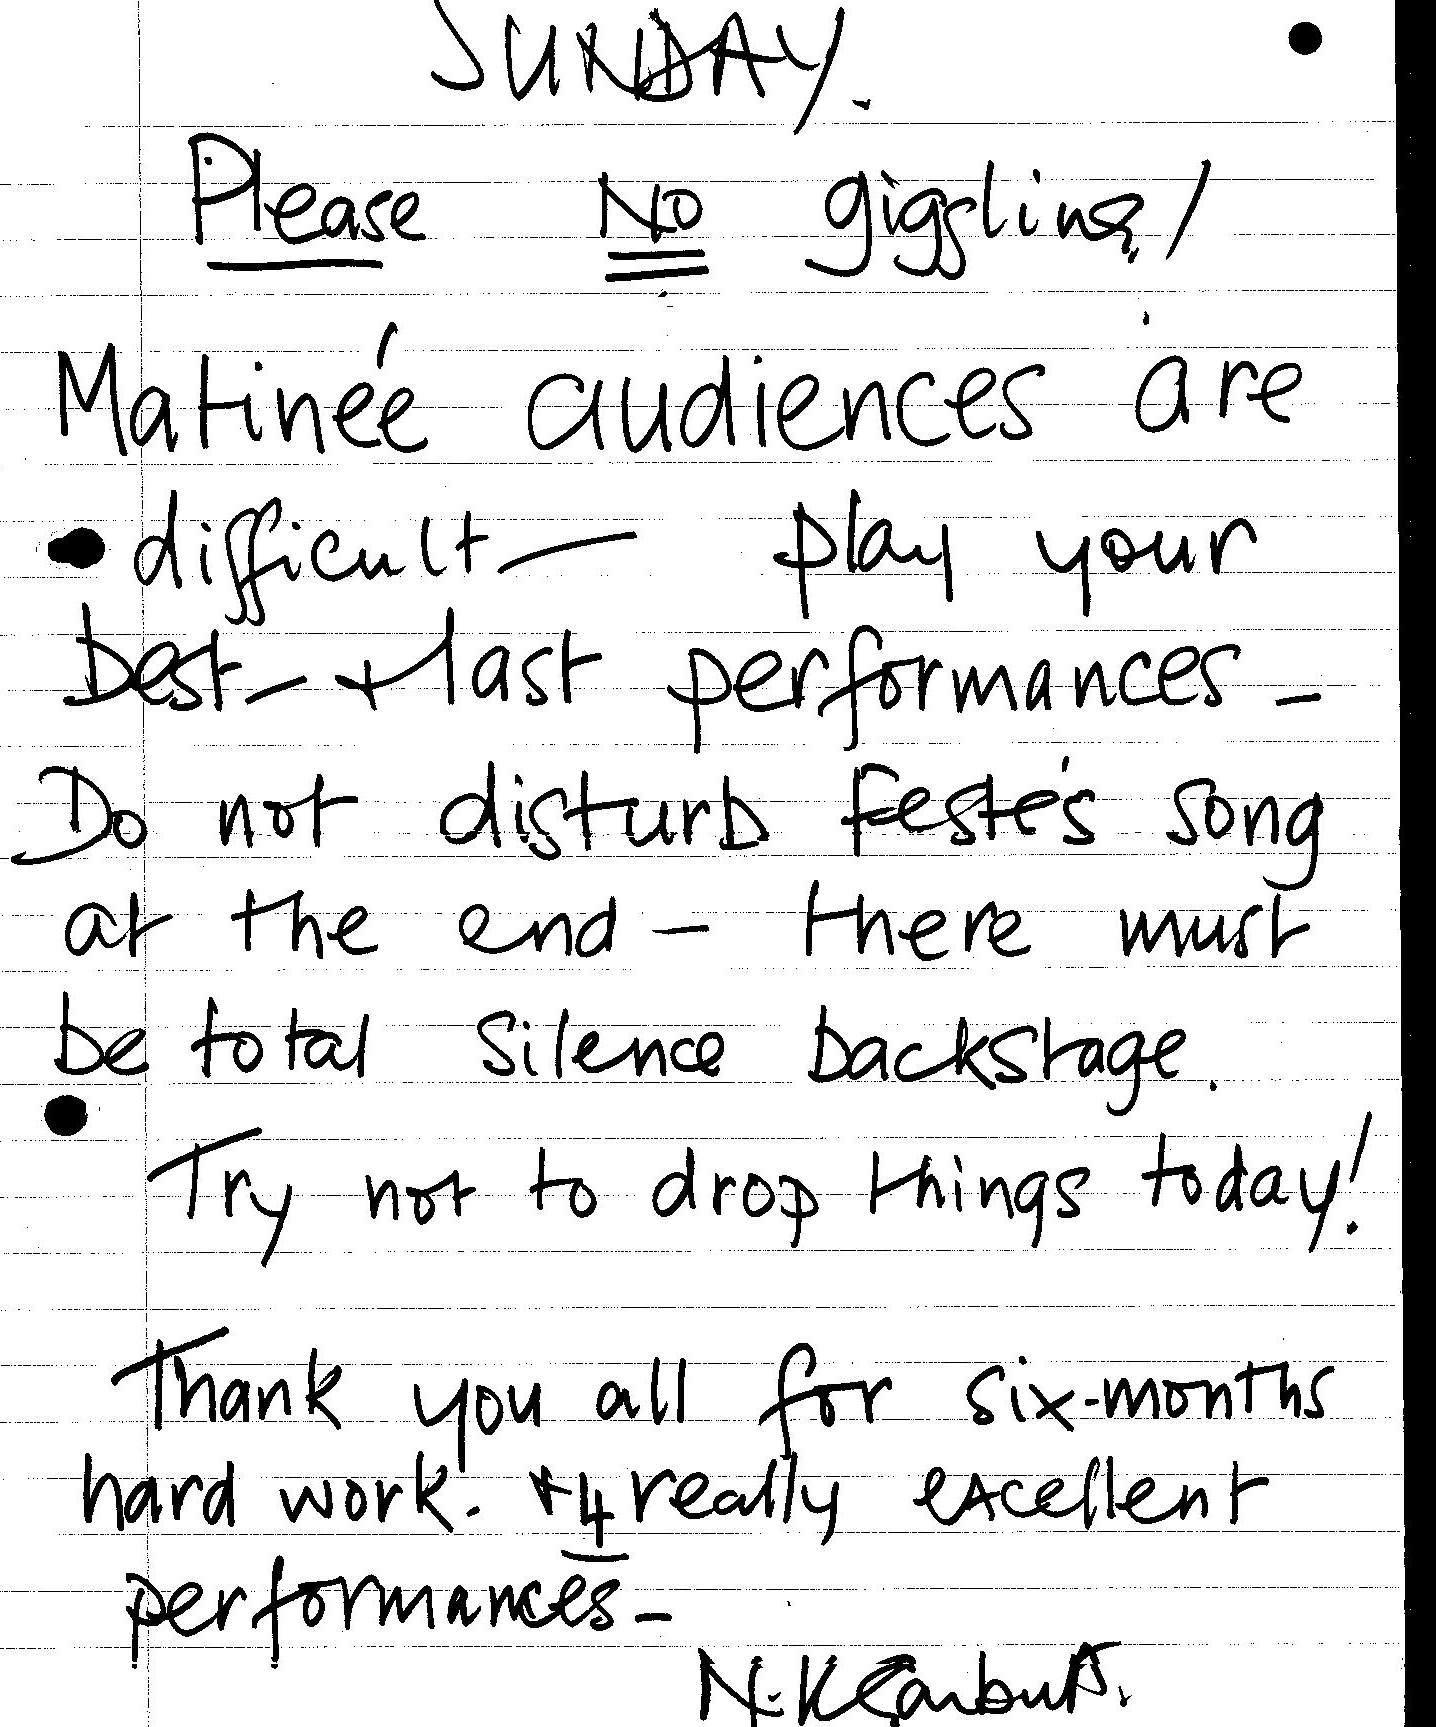 SUNDAY.
Please NO giggling!
Matinée audiences are
difficult — play your
best – + last performances –
Do not disturb Feste's song
at the end – there must
be total silence backstage.
Try not to drop things today!
Thank you all for six-months
hard work. + 4 really excellent
performances –
N.K.